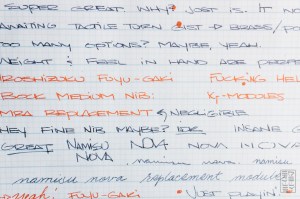 SUPER GREAT WHY? JUST IS. IT NO
AWAITING TACTILE TURN GIST → BRASS/
TOO MANY OPTIONS? MAYBE, YEAH.
WEIGHT & FEEL IN HAND ARE PERFE
IROSHIZUKU FUYU-GAKI FUCKING HEL
BOCK MEDIUM NIB.
MIRA REPLACEMENT NEGLIGIBLE
HEY FINE NIB MAYBE? IDK INSANE G
GREAT NAMISU NOVA NOVA NOVA
NOVA namisu nova namisu
namisu nova replacement module
yeah! FUYU-GAKI "JUST PLAYIN'